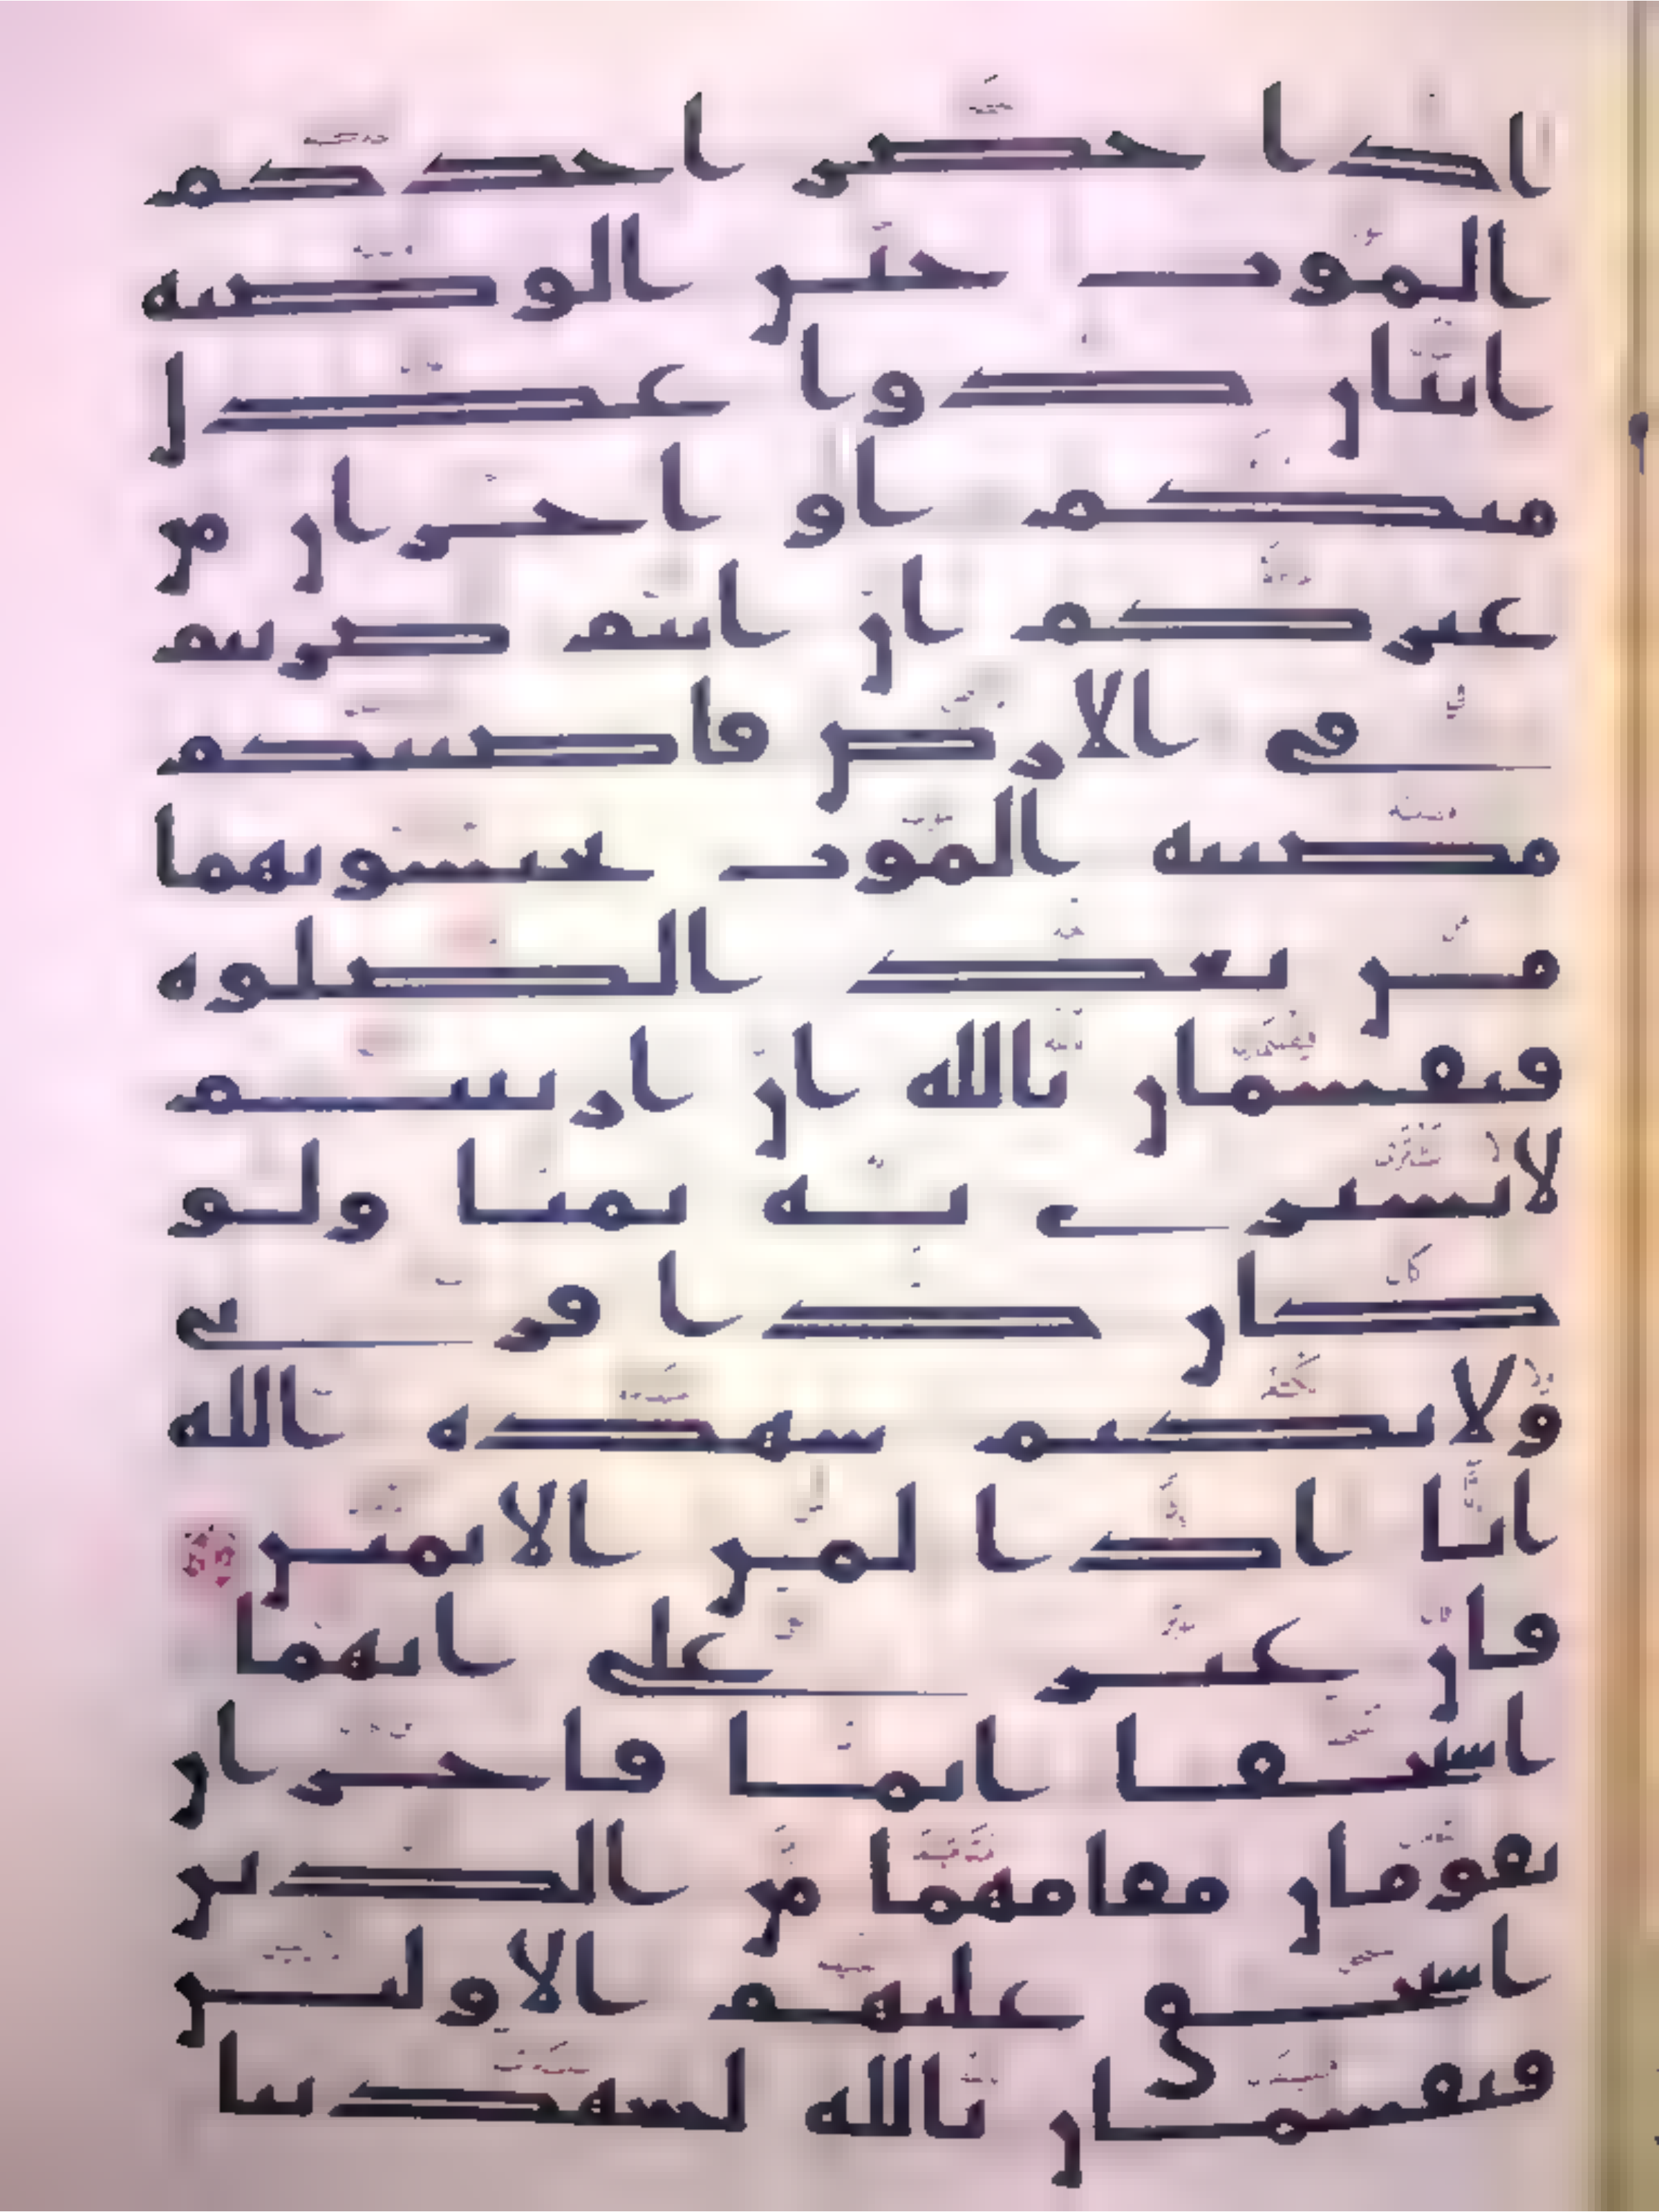 اذا حضر احدكم
الموت حين الوصية
اثنان ذوا عدل
منكم او اخران من
غيركم ان انتم ضربتم
في الارض فاصبتكم
مصيبة الموت تحبسونهما
من بعد الصلوة
فيقسمان بالله ان ارتبتم
لا نشتري به ثمنا ولو
كان ذا قربى
ولا نكتم شهدة الله
انا اذا لمن الاثمين
فان عثر على انهما
استحقا اثما فاخران
يقومان مقامهما من الذين
استحق عليهم الاولين
فيقسمان بالله لشهدتنا